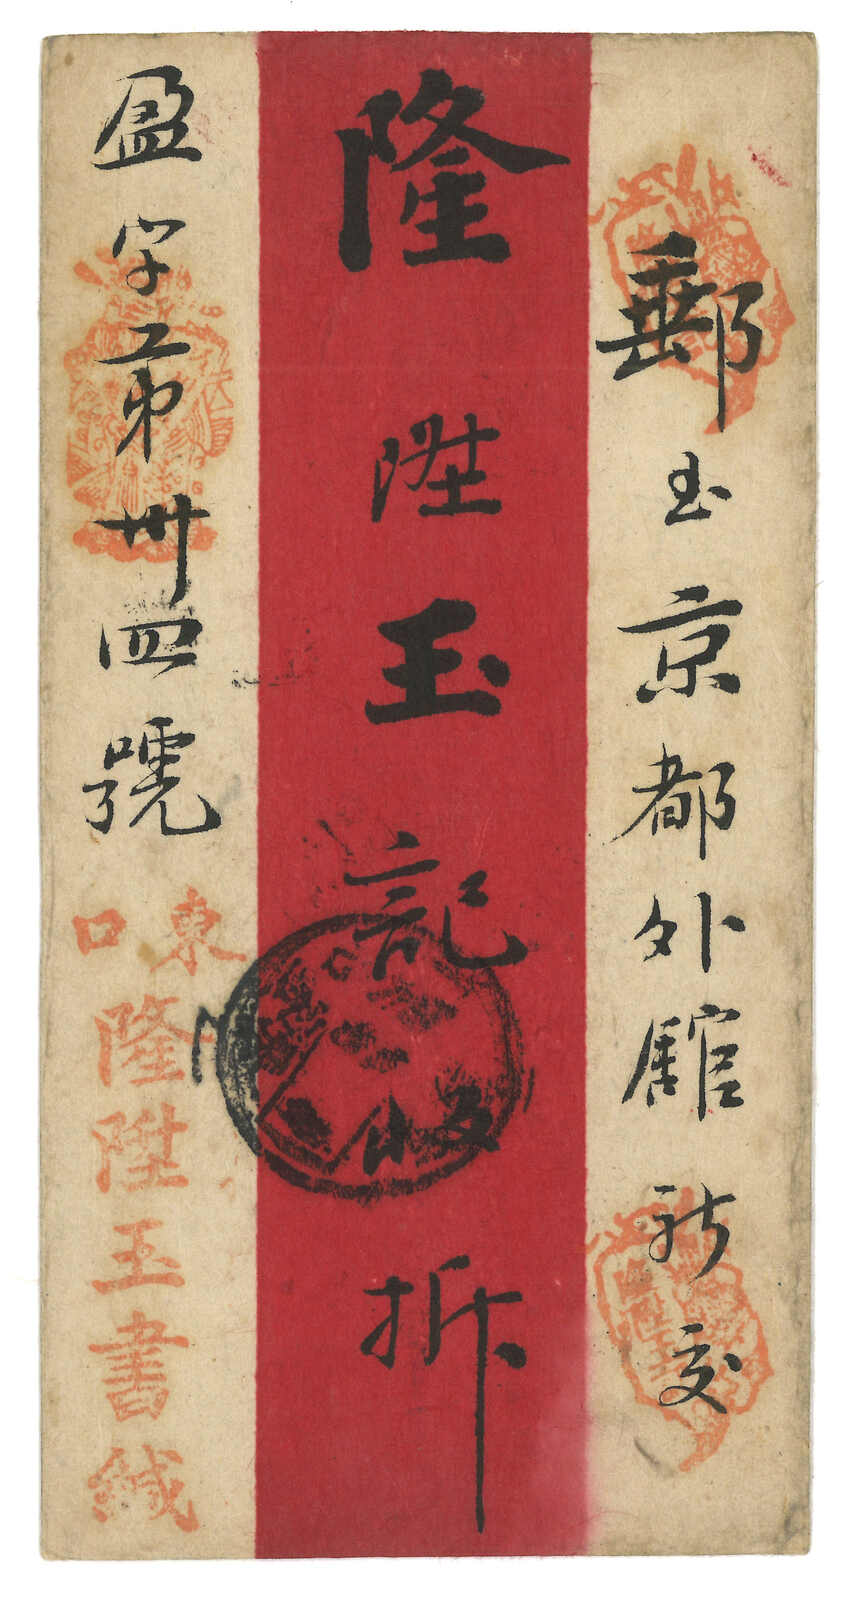 郵至京都外館祈交
隆陞玉記收拆
盈字第卅四號
東口
隆陞玉書緘